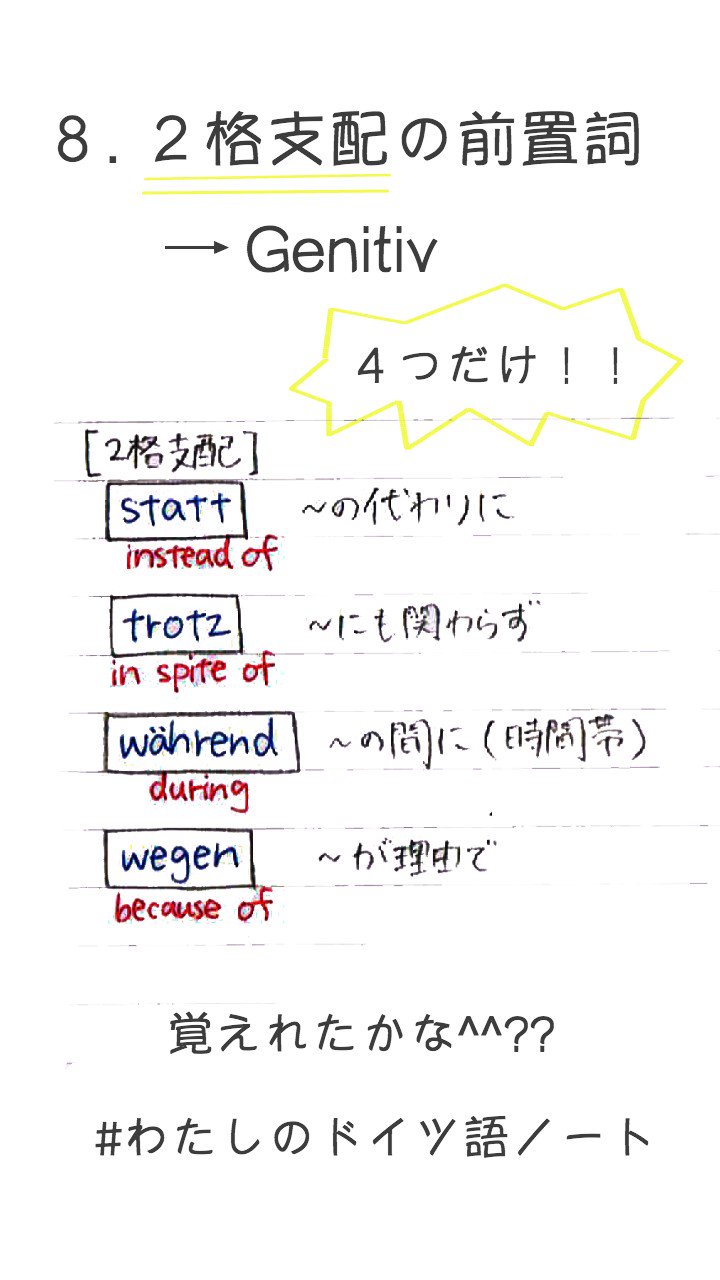 8. 2格支配の前置詞
→ Genitiv
4つだけ！！
[2格支配]
statt ~の代わりに
instead of
trotz ~にも関わらず
in spite of
während ~の間に(時間帯)
during
wegen ~が理由で
because of
覚えれたかな^^??
#わたしのドイツ語ノート